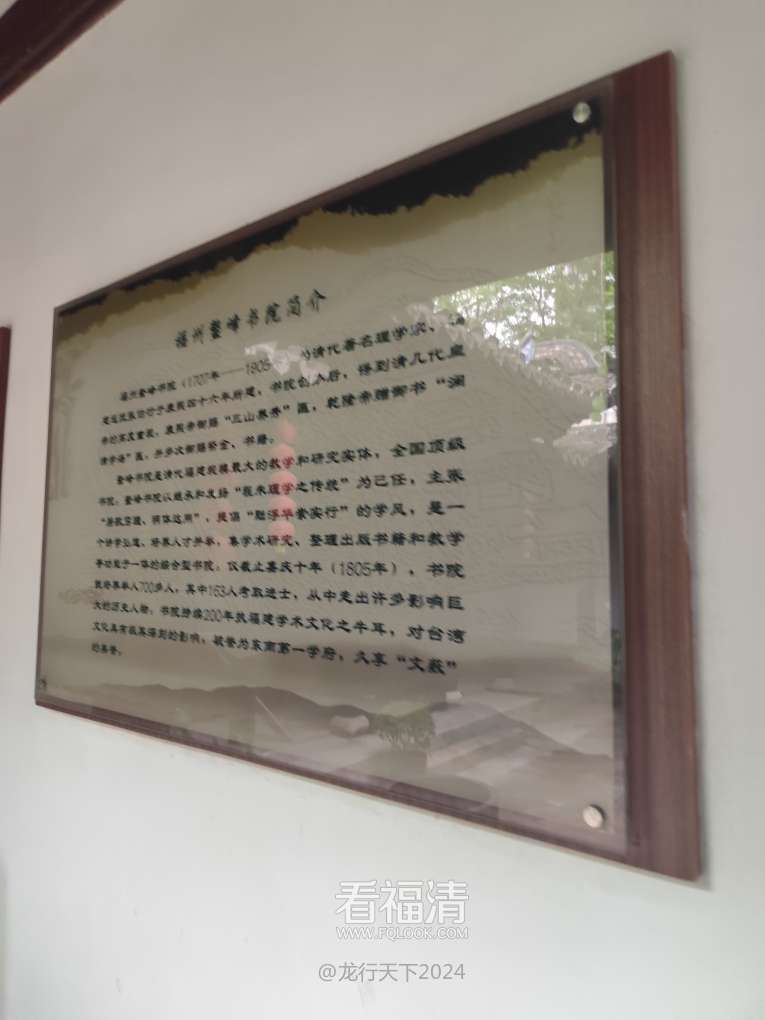 福州鳌峰书院简介
鳌峰书院(1707年——1805 为清代著名理学家、
建巡抚张伯行于康熙四十六年所建,书院创办后,得到清几代皇
帝的嘉奖重视,康熙帝御赐“三山养秀”匾,乾隆帝赠御书“澜
清学海”匾,并多次御赐帑金、书籍。
鳌峰书院是清代福建规模最大的教学和研究实体,全国顶级
书院。鳌峰书院以继承和发扬“程朱理学之传统”为己任,主张
“居敬穷理、明体达用”,提倡“黜浮华素实行”的学风,是一
个讲学弘道、培养人才并举,集学术研究、整理出版书籍和教学
等功能于一体的综合型书院。仅截止嘉庆十年(1805年),书院
就培养举人700多人,其中163人考取进士,从中走出许多影响巨
大的历史人物。书院持续200年执福建学术文化之牛耳,对台湾
文化具有极其深刻的影响,被誉为东南第一学府,久享“文薮”
的美誉。
看福清
WWW.FQLOOK.COM
@龙行天下2024